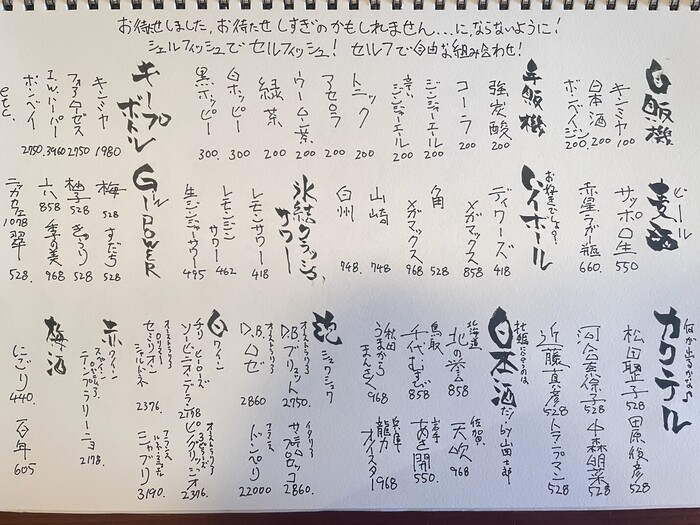 お待せしました,お待たせしすぎのかもしれません...に,ならないように!
シェルフィッシュでセルフィッシュ! セルフで自由な組み合わせ!
自販機
キンミヤ 100
日本酒 200
ボンベイジン 200
手販機
強炭酸 200
コーラ 200
ジンジャーエール 200
辛いジンジャーエール 200
トニック 200
アセロラ 200
ウーロン茶 200
緑茶 200
白ホッピー 300
黒ホッピー 300.
キープボトル
キンミヤ 1980
フォアローゼス 2750
I.W.ハーパー 3960
ボンベイ 2750.
etc.
ビール
麦酒
サッポロ生 550
赤星ラガー瓶 660.
お好きでしょ?
ハイボール
ディワーズ 418
〃メガマックス 858
角 528
〃メガマックス 968
山崎 748
白州 748.
氷結クラッシュサワー
レモンサワー 418
レモンジンサワー 462
生ジンジャーサワー 495
GIN POWER
梅 528
すだち 528
柚子 528
きゅうり 528
六 858
季の美 968
ニッカカフェ 1078
翠 528.
何が出るかな?
カクテル
松田聖子 528
田原俊彦 528
河合奈保子 528
中森明菜 528
近藤真彦 528
トラップマン 528
日本酒だらけ山田太郎
北海道 北の誉 858
佐賀 天吹 968
鳥取 千代むすび 858
岩手 あさ開 550.
秋田 うまからまんさく 968
兵庫 龍力オイスター 1968
泡
シュワシュワ
オーストラリア D.B.ブリュット 2750.
イタリア サンテロプロセッコ 2860.
オーストラリア D.B.ロゼ 2860
フランス ドンペリ 22000
白ワイン
チリ ソービニオン・ブラン 2178
オーストラリア ピノグリージオ 2376.
オーストラリア セミリオンシャルドネ 2376.
フランス シャブリ 3190.
赤ワイン
スペイン テンプラリーニョ 2178.
梅酒
にごり 440.
百年 605